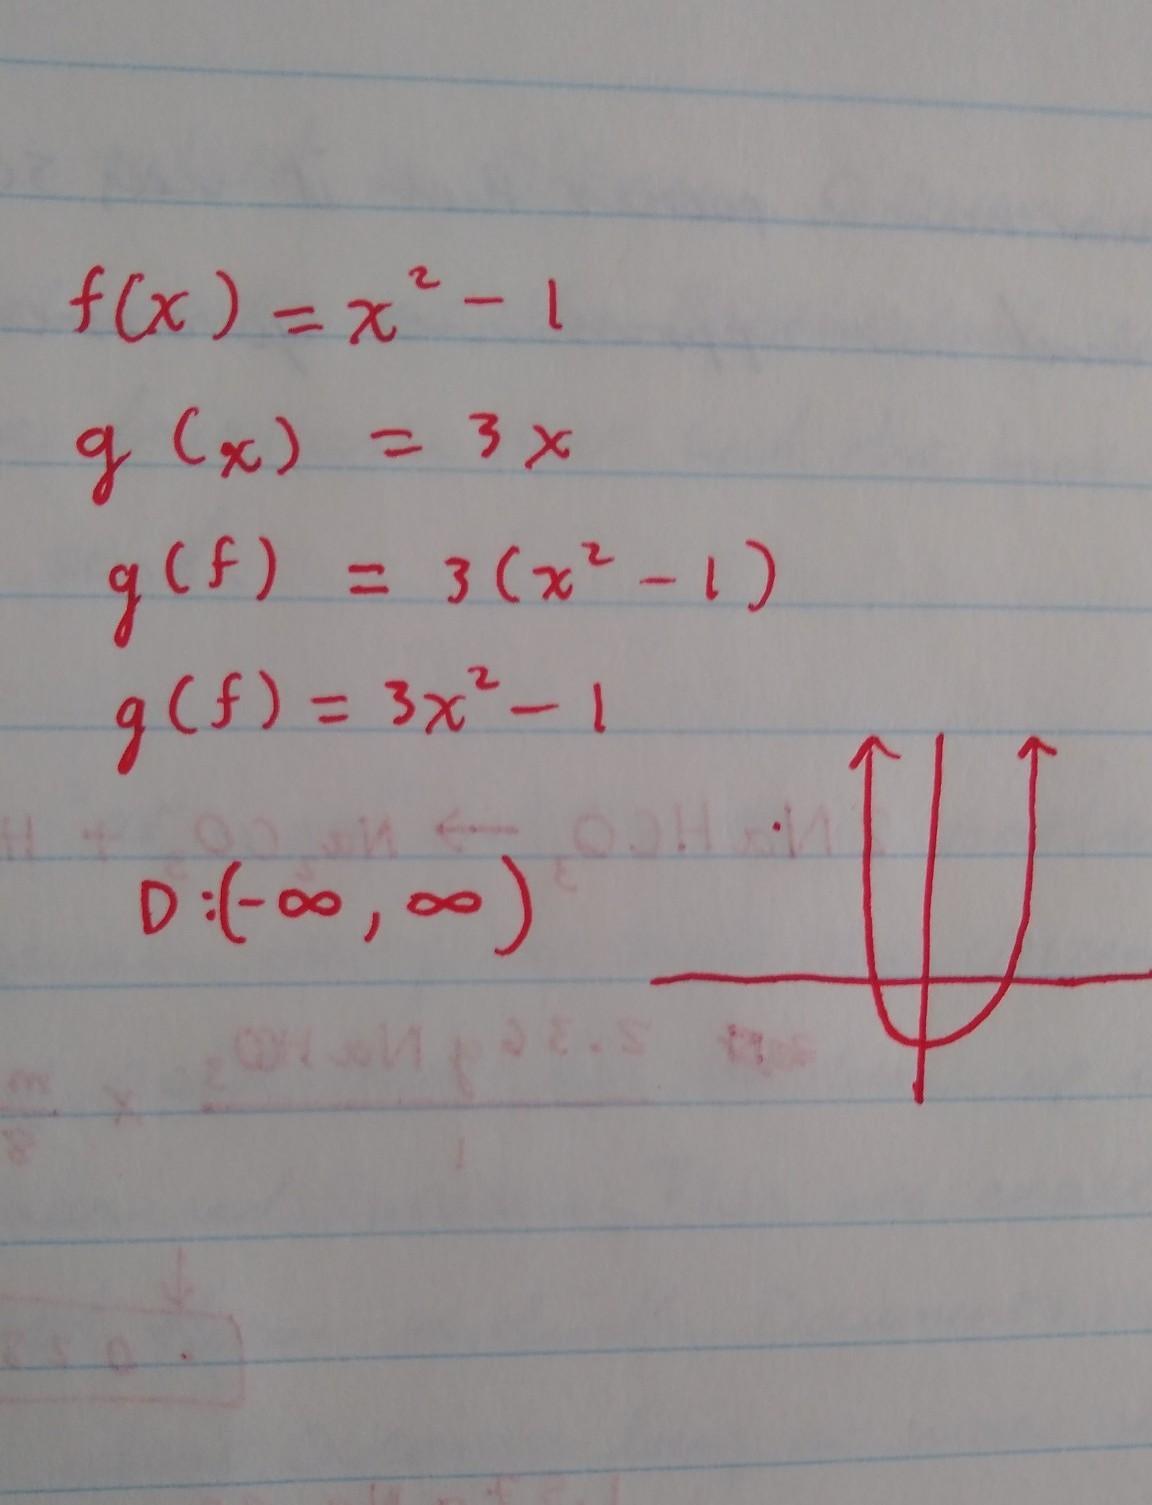 f(x) = x² - 1
g(x) = 3x
g(f) = 3(x² - 1)
g(f) = 3x² - 1
D:(-∞, ∞)